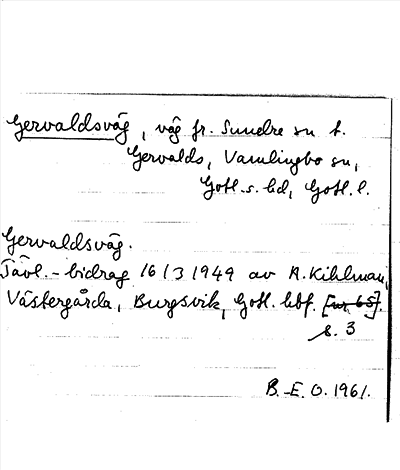 Gervaldsväg, väg fr. Sundre sn t.
Gervalds, Vamlingbo sn,
Gotl. s. hd, Gotl. l.
Gervaldsväg.
Tävl.-bidrag 16/3 1949 av R. Kihlman,
Västergårda, Burgsvik, Gotl. hbf. [nr 65].
s. 3
B.-E. O. 1961.